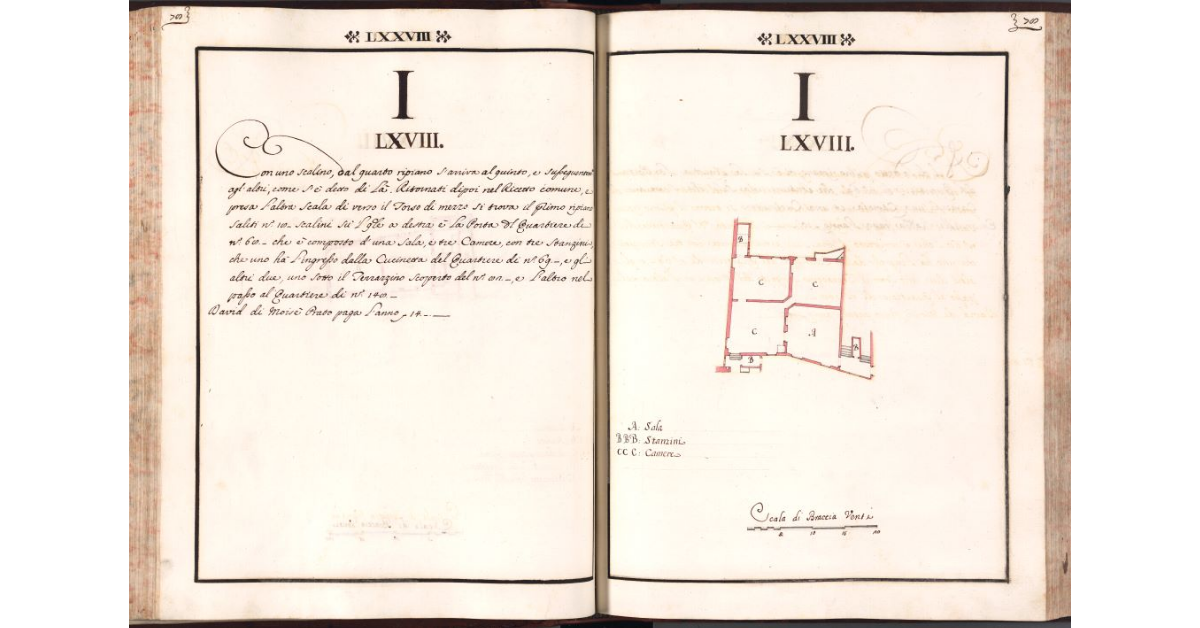 LXXVIII
I
LXVIII.
Con uno scalino, dal quarto ripiano s'arriva al quinto, e
agl'altri, come s'è detto di là, Ritornati dipoi nel Ricetto comune, e
presa l'altra Scala di verso il di mezzo si trova il Primo ripiano
Saliti nº 10 scalini a destra è la Porta del Quartiere di
nº 60 che è composto d'una Sala, e tre Camere, con tre Stanzini,
che uno hà l'ingresso dalla Cucinetta del Quartiere di nº 69, e gl'
altri due, uno sotto il Terrazzino scoperto del nº e l'altro nel
passo al Quartiere di nº 140
David di Moisè Prato paga l'anno 14
LXXVIII
I
LXVIII.
B
C C
C A
B
B
A: Sala
BBB: Stanzini
CC C: Camere
Scala di Braccia Venti
5 10 15 20